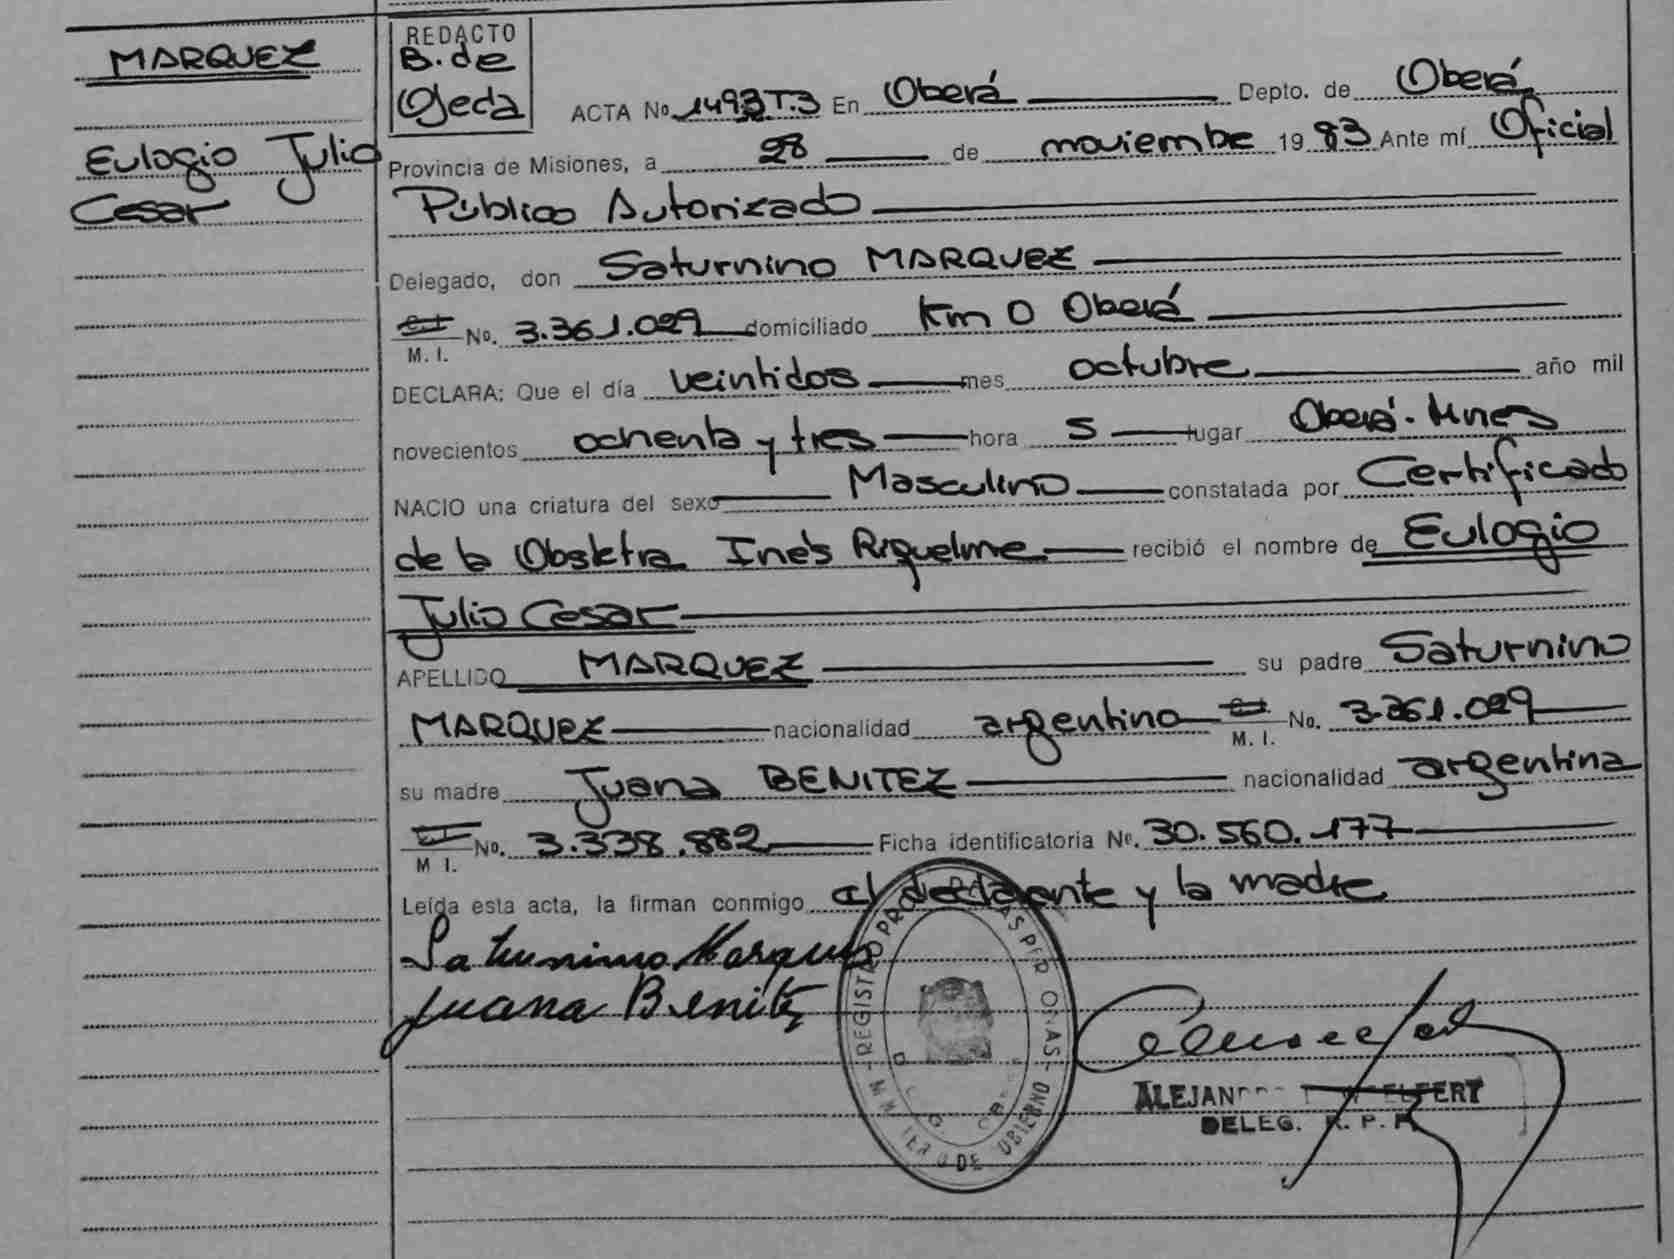 MARQUEZ
Eulogio Julio
Cesar
REDACTO
B. de
Ojeda
ACTA No. 1493 T.3 En Oberá Depto. de Oberá
Provincia de Misiones, a 28 de noviembre 1983 Ante mí Oficial
Público Autorizado
Delegado, don Saturnino MARQUEZ
C.I. M. I. No. 3.361.029 domiciliado Km 0 Oberá
DECLARA: Que el día veintidos mes octubre año mil
novecientos ochenta y tres hora 5 lugar Oberá. Mnes
NACIO una criatura del sexo Masculino constatada por Certificado
de la Obstetra Inés Riquelme recibió el nombre de Eulogio
Julio Cesar
APELLIDO MARQUEZ su padre Saturnino
MARQUEZ nacionalidad argentino C.I. M. I. No. 3.361.029
su madre Juana BENITEZ nacionalidad argentina
C.I. M I. No. 3.338.882 Ficha identificatoria No. 30.560.177
Leída esta acta, la firman conmigo el declarante y la madre
Saturnino Marques
Juana Benítez
REGISTRO PROV. DE LAS PERSONAS
DE GOBIERNO
ALEJAN
DELEG. R. P. P.